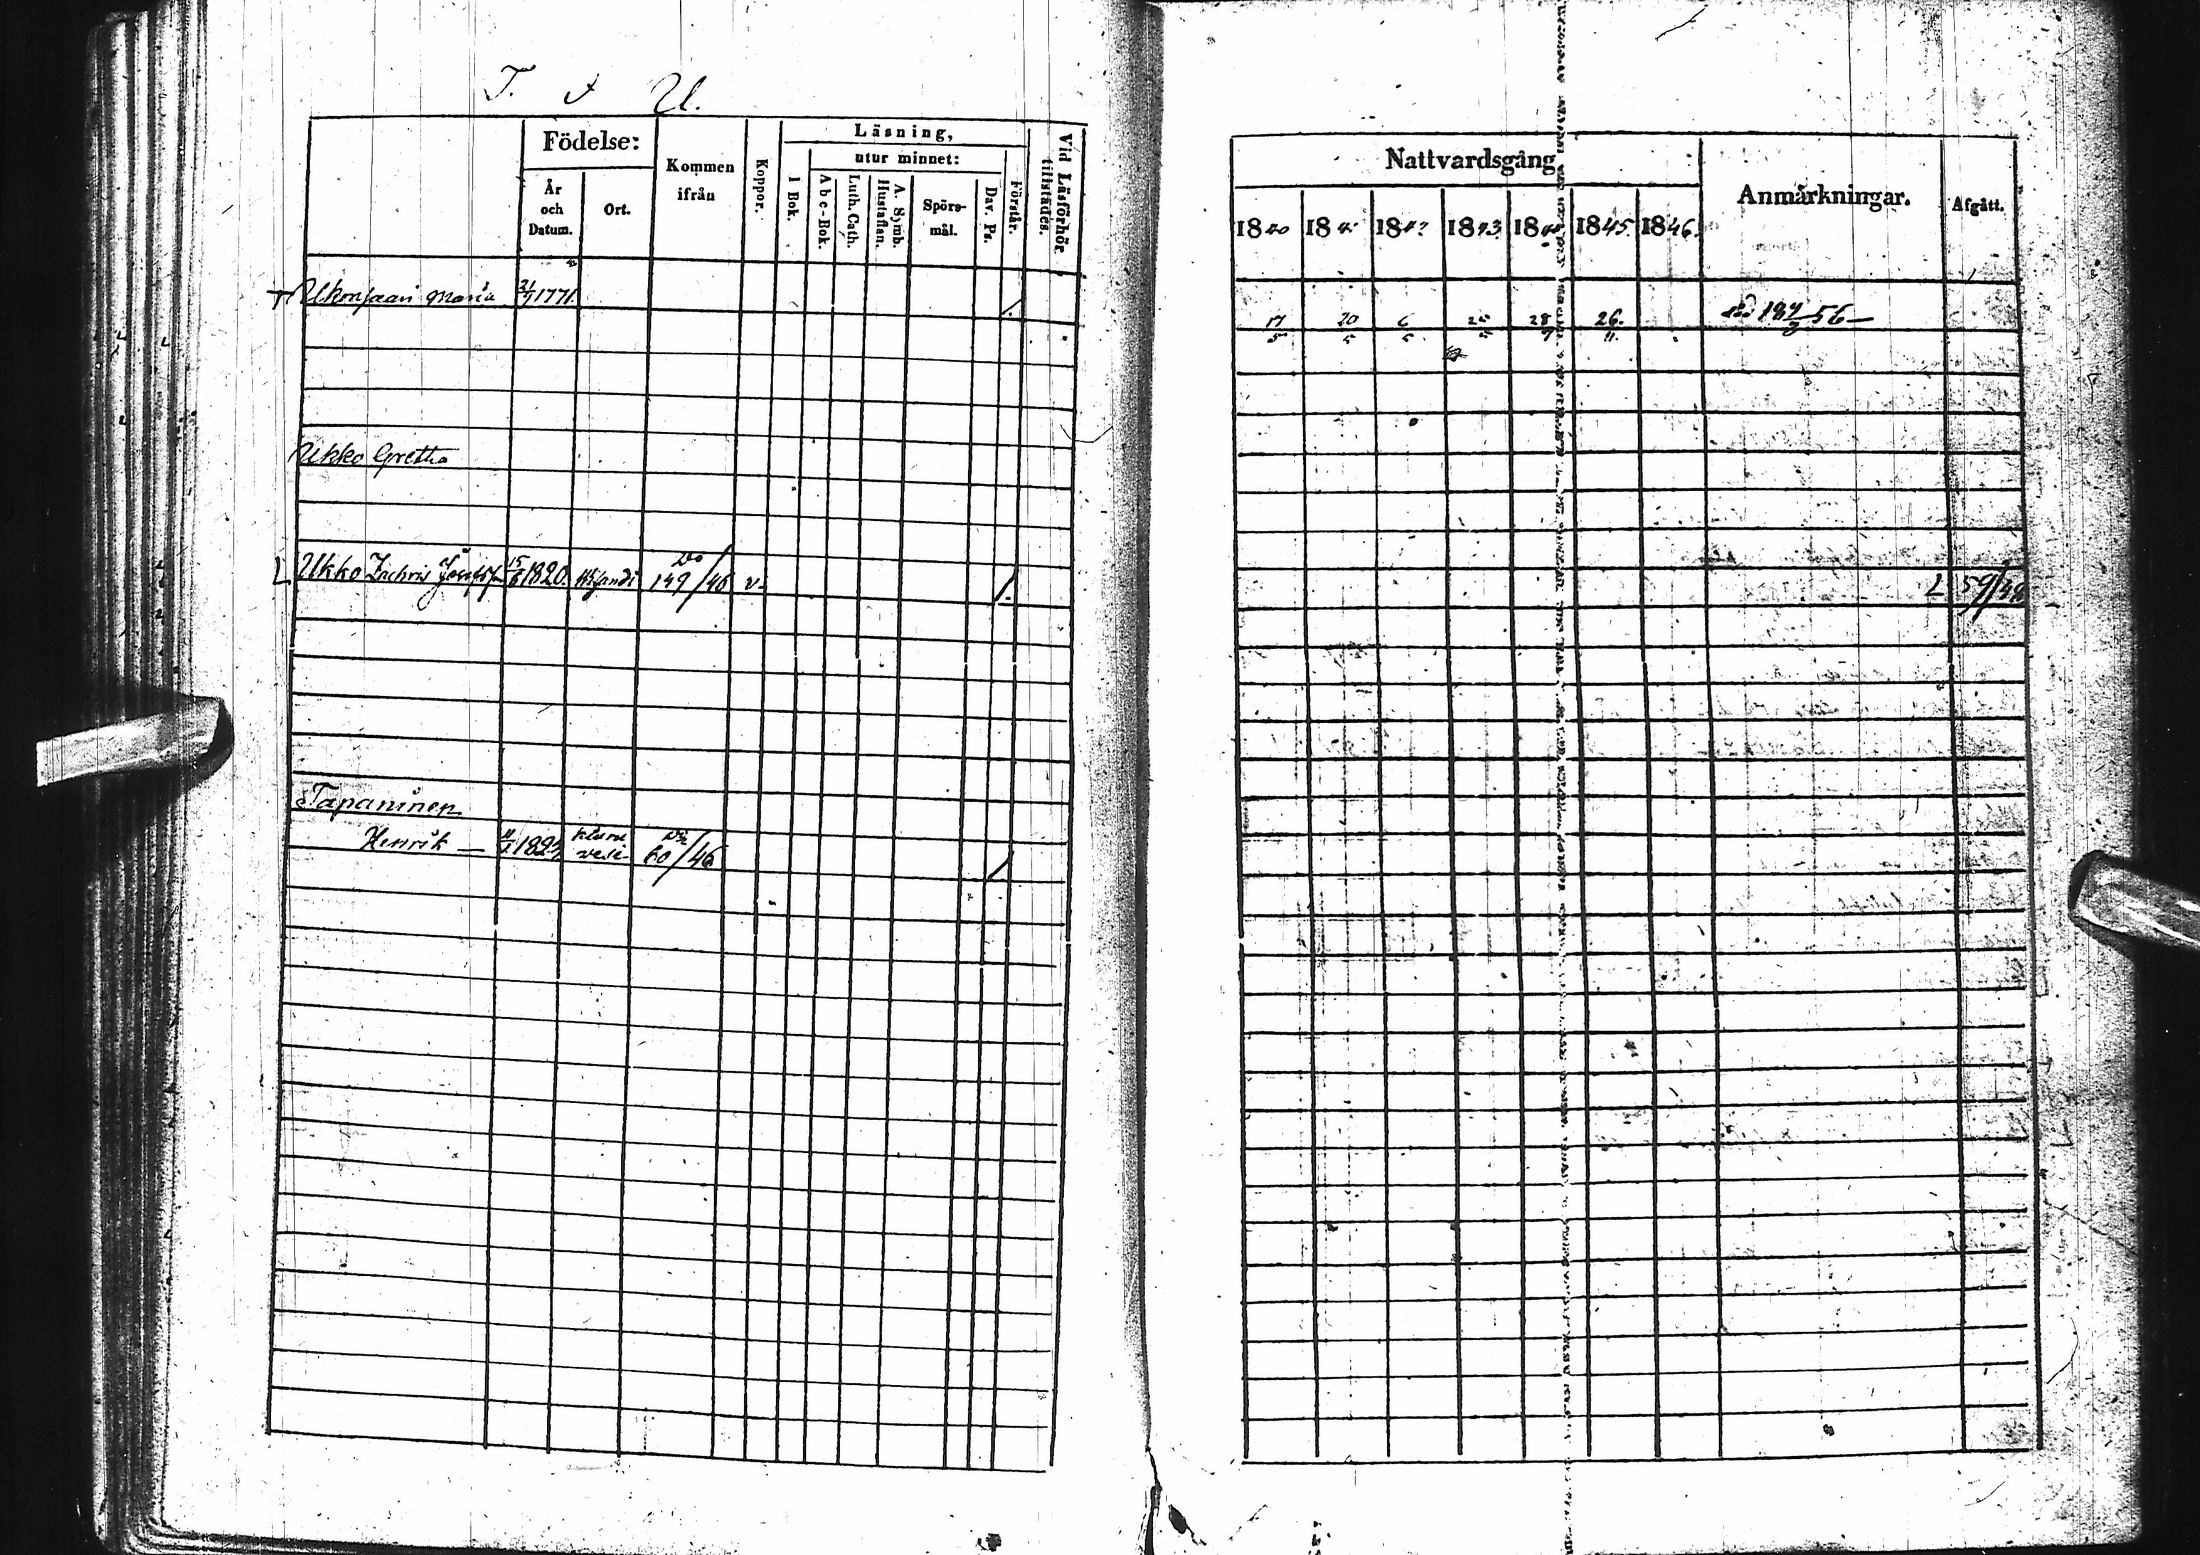 T. & U.
Födelse:
År
och
Datum.
Ort.
Kommen
ifrån
Koppor.
Läsning,
1 Bok.
utur minnet:
Abc-Bok.
Luth. Cath.
A. Symb.
Hustaflan.
Spörs-
mål.
Dav. Ps.
Förstår.
Vid Läsförhör
tillstädes.
Ukonsaari Maria 21/9 1771.
Ukko Gretha
L Ukko Zachris 15/6 1820. 149/46 v.
Tapaninen
Henrik — 60/46
Nattvardsgång
1840 184 184 1843 184 1845. 1846.
Anmärkningar.
Afgått.
17/5 20/5 6/5 25/5 28/7 26./11. 56—
L 59/48